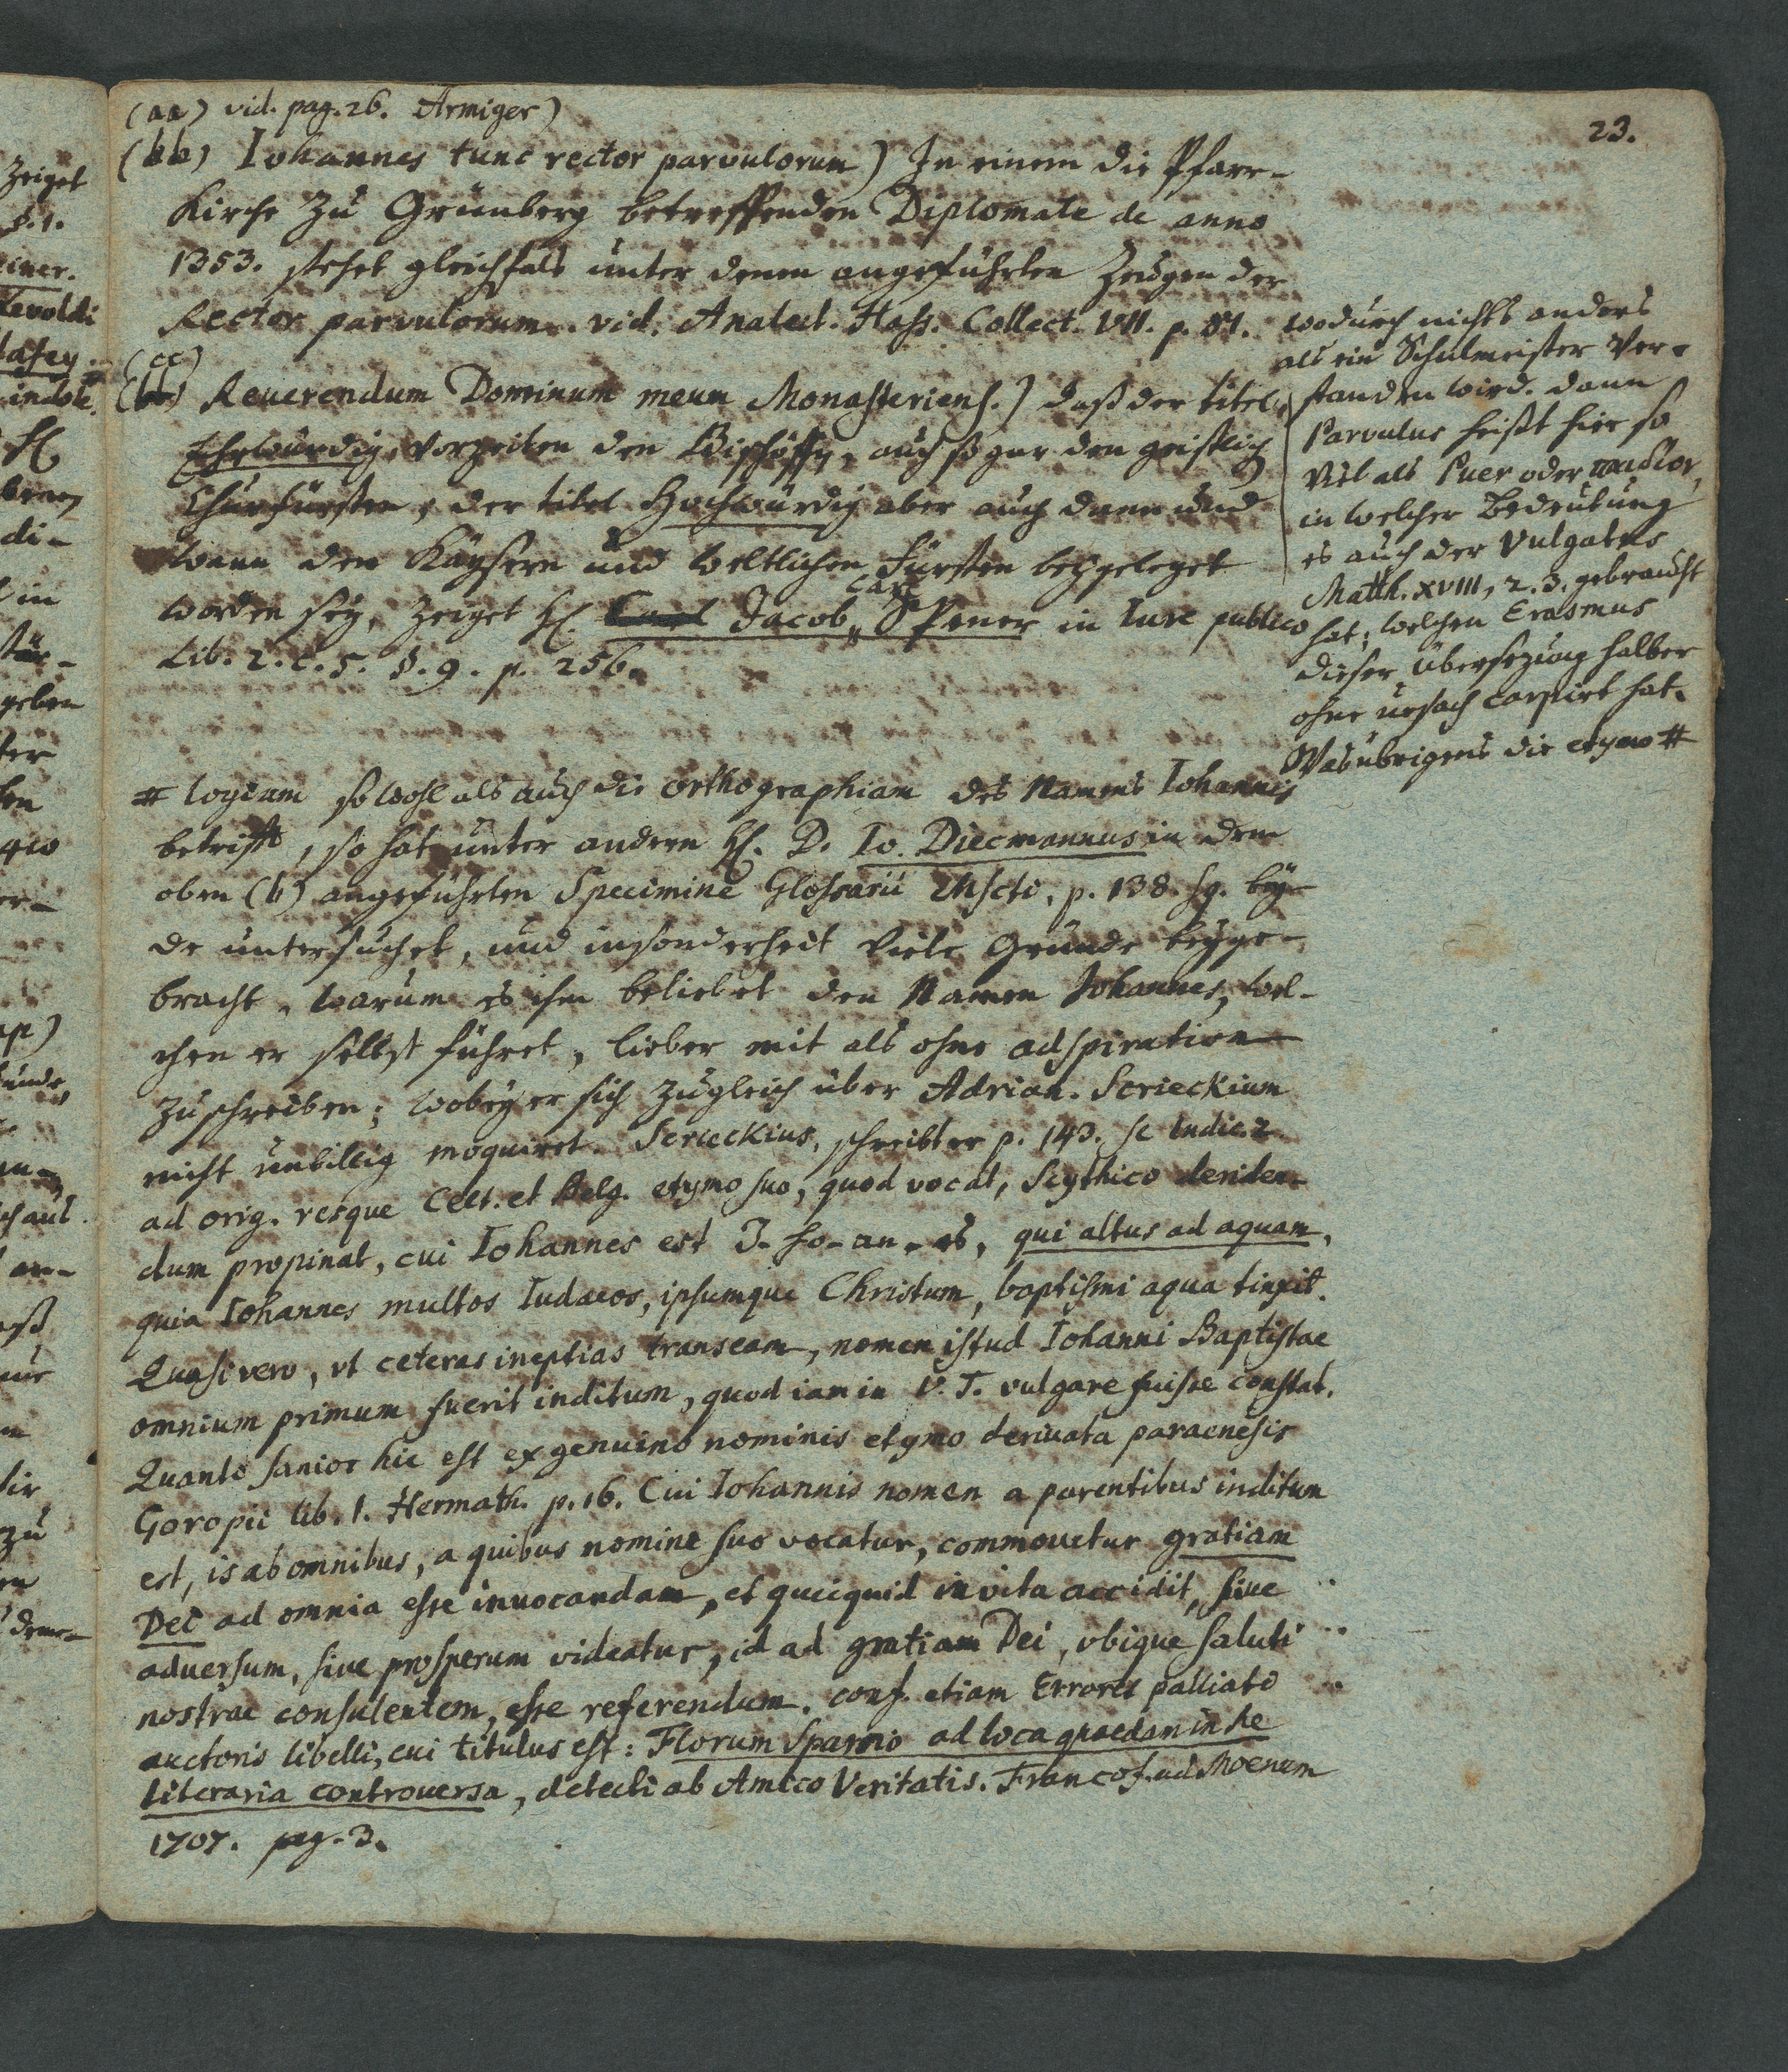 23.
(aa) vid. pag. 26. Armiger)
(bb) Iohannes tunc rector parvulorum) In einem die Pfarr-
Kirche zu Grünberg betreffenden Diplomate de anno
1353. stehet gleichfals unter denen angeführten Zeugen der
Rector parvulorum. vid. Analect. Hass. Collect. VII. p. 81.
wodurch nichts anders
als ein Schulmeister ver-
standen wird. dann
Parvulus heißt hier so
viel als Puer oder παιδίον,
in welcher Bedeutung
es auch der Vulgatus
Matth. XVIII, 2. 3. gebraucht
hat; welchen Erasmus
dieser übersezung halber
ohne ursach carpirt hat.
Was übrigens die etymo #
(cc)
Reuerendum Dominum meum Monasteriens.) daß der titel
Ehrwürdig vorzeiten den Bischöffen, auch sogar den geistlich
Churfürsten, der titel Hochwürdig aber auch dann und
wann den Kaysern und weltlichen Fürsten beygeleget
worden sey, zeiget H. Jacob Carl Spener in Iure publico
Lib. 2. c. 5. §. 9. p. 256.
# logiam so wohl als auch die orthographiam des Namens Iohannis
betrifft, so hat unter andern H. D. Io. Diecmannus in dem
oben (b) angeführten Specimine Glossarii Mscti, p. 138. sq. bey-
de untersuchet, und insonderheit viele Gründe beyge-
bracht, warum es ihm beliebet den Namen Johannes, wel-
chen er selbst führet, lieber mit als ohne adspiration
zuschreiben; wobey er sich zugleich über Adrian. Scrieckium
nicht unbillig moquiret. Scrieckius, schreibt er p. 143. se Indic. 2
ad orig. resque Celt. et Belg. etymo suo, quod vocat, Scythico deriden-
dum propinat, cui Iohannes est J-ho-an-es, qui altus ad aquam,
quia Iohannes multos Iudaeos, ipsumque Christum, baptismi aqua tinxit.
Quasi vero, vt ceteras ineptias transeam, nomen istud Iohanni Baptistae
omnium primum fuerit inditum, quod iam in V. T. vulgare fuisse constat.
Quanto sanior hic est ex genuino nominis etymo deriuata paraenesis
Goropii lib. 1. Hermath. p. 16. Cui Iohannis nomen a parentibus inditum
est, is ab omnibus, a quibus nomine suo vocatur, commouetur gratiam
Dei ad omnia esse inuocandam, et quicquid in vita accidit, siue
aduersum, siue prosperum videatur, id ad gratiam Dei, vbique saluti
nostrae consulentem, esse referendum. conf. etiam Errores palliati
auctoris libelli, cui titulus est: Florum Sparsio ad loca quaedam in re
literaria controuersa, detecti ab Amico Veritatis. Francof. ad Moenum
1707. pag. 3.